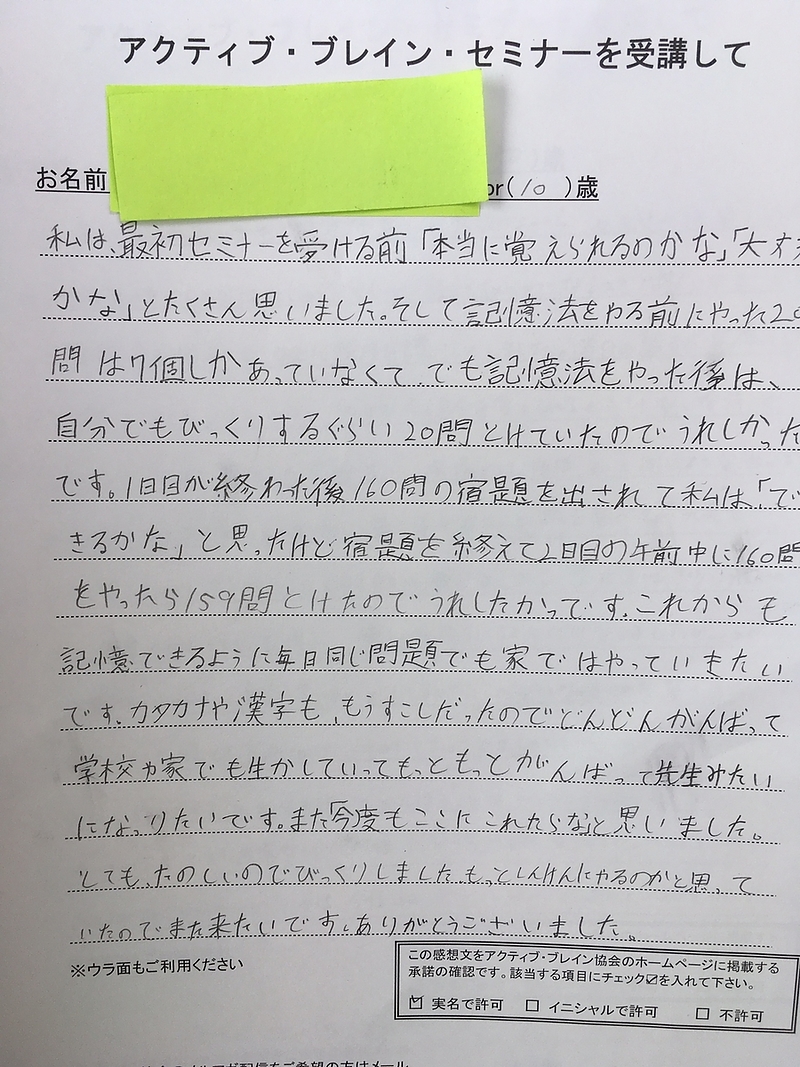 アクティブ・ブレイン・セミナーを受講して
お名前 or(10)歳
私は、最初セミナーを受ける前「本当に覚えられるのかな」「大丈
かな」とたくさん思いました。そして記憶法をやる前にやった20
問は7個しかあっていなくて、でも記憶法をやった後は、
自分でもびっくりするぐらい20問とけていたのでうれしかった
です。1日目が終わった後160問の宿題を出されて私は「で
きるかな」と思ったけど宿題を終えて2日目の午前中に160問
をやったら159問とけたのでうれしたかってです。これからも
記憶できるように毎日同じ問題でも家ではやっていきたい
です。カタカナや漢字も、もうすこしだったのでどんどんがんばって
学校や家でも生かしていってもっともっとがんばって先生みたい
になったりたいです。また「今度もここにこれたらな」と思いました。
とても、たのしいのでびっくりしました。もっとしんけんにやるのかと思って
いたのでまた来たいです。ありがとうございました。
※ウラ面もご利用ください
この感想文をアクティブ・ブレイン協会のホームページに掲載する
承諾の確認です。該当する項目にチェック☑を入れて下さい。
☑ 実名で許可 □ イニシャルで許可 □ 不許可